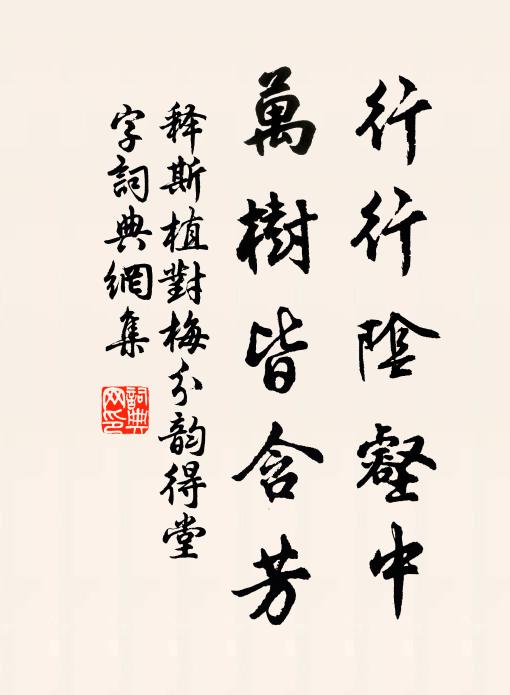 行行陰壑中
萬樹皆含芳
释斯植對梅分韵得堂
字詞典網集
詞典
网印